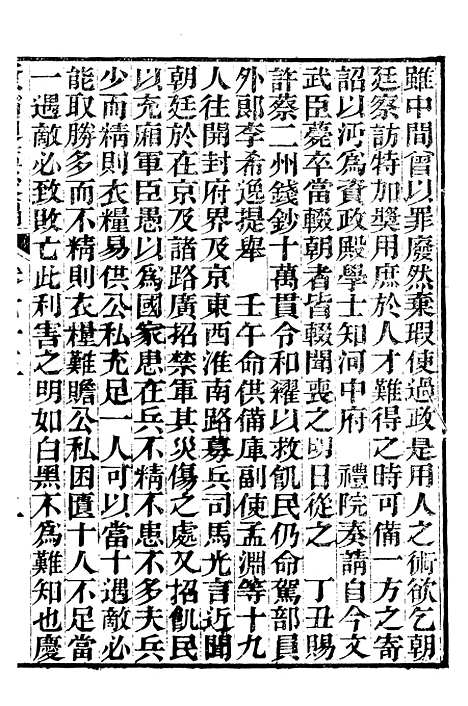 雖中間曾以罪廢然棄瑕使過政是用人之術欲乞朝
廷察訪特加奬用庶於人才難得之時可備一方之寄
詔以沔爲資政殿學士知河中府　禮院奏請自今文
武臣薨卒當輟朝者皆輟聞喪之明日從之　丁丑賜
許蔡二州錢鈔十萬貫令和糴以救飢民仍命駕部員
外郎李希逸提舉　壬午命供備庫副使孟淵等十九
人往開封府界及京東西淮南路募兵司馬光言近聞
朝廷於在京及諸路廣招禁軍其災傷之處又招飢民
以充廂軍臣愚以爲國家患在兵不精不患不多夫兵
少而精則衣糧易供公私充足一人可以當十遇敵必
能取勝多而不精則衣糧難贍公私困匱十人不足當
一遇敵必致敗亡此利害之明如白黑不爲難知也慶